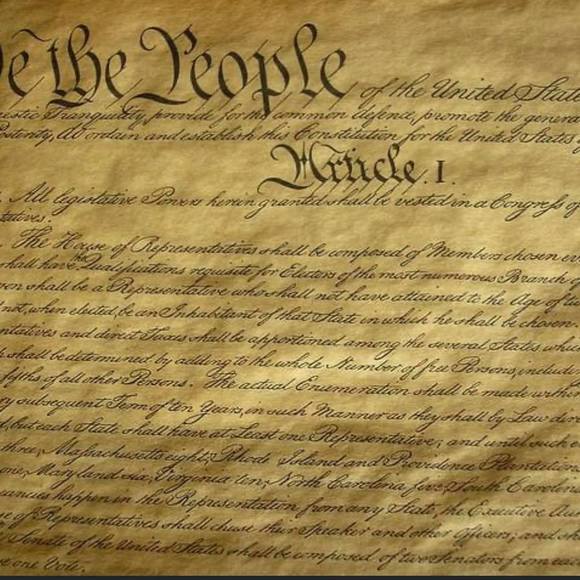 We the People of the United States
estic Tranquility, provide for the common defence, promote the general
Posterity, do ordain and establish this Constitution for the United States of
Article. I.
. All legislative Powers herein granted shall be vested in a Congress of
tatives.
. The House of Representatives shall be composed of Members chosen eve
shall have the Qualifications requisite for Electors of the most numerous Branch of
son shall be a Representative who shall not have attained to the Age of tw
not, when elected, be an Inhabitant of that State in which he shall be chosen.
ntatives and direct Taxes shall be apportioned among the several States which
shall be determined by adding to the whole Number of free Persons, includi
fifths of all other Persons. The actual Enumeration shall be made within
ry subsequent Term of ten Years, in such Manner as they shall by Law dire
d, but each State shall have at Least one Representative; and until such e
three, Massachusetts eight, Rhode Island and Providence Plantations
one, Maryland six, Virginia ten, North Carolina five, South Carolina
cancies happen in the Representation from any State, the Executive Aut
se of Representatives shall chuse their Speaker and other Officers; and sh
Senate of the United States shall be composed of two Senators from each
ve one Vote.